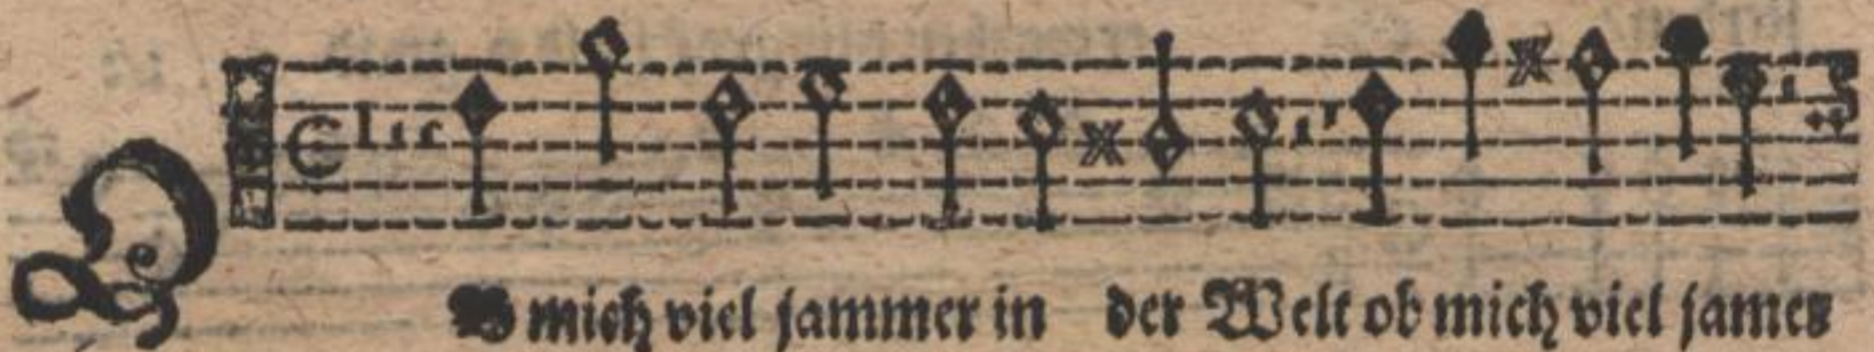 OB mich viel jammer in der Welt ob mich viel jamer